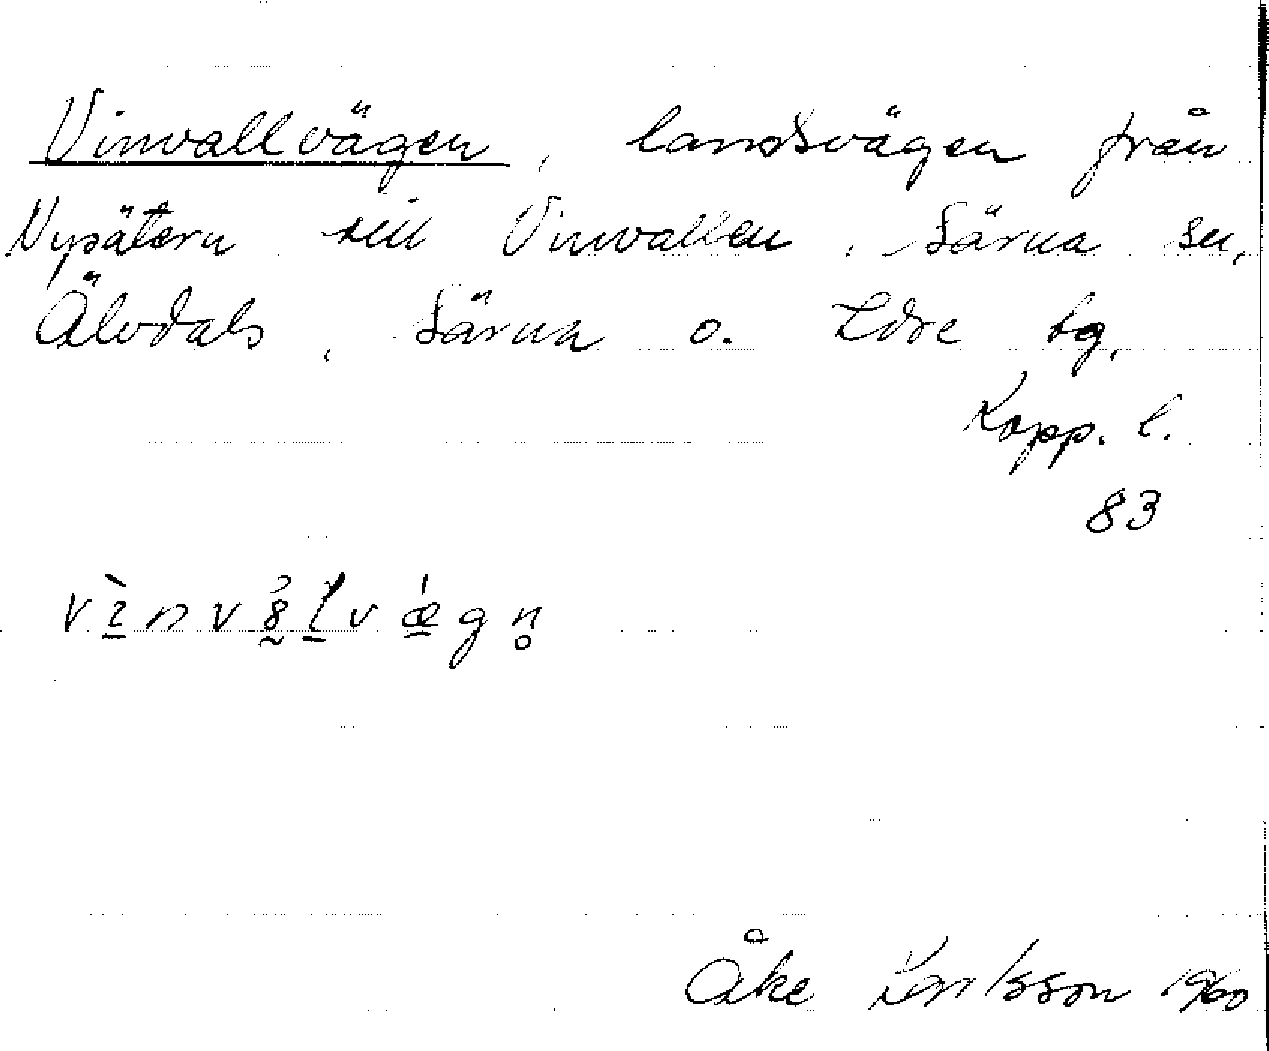 Vinvallvägen, landsvägen från
Nysätern till Vinvallen, Särna sn,
Älvdals, Särna o. Idre tg,
Kopp. l.
83
Åke Karlsson 1960